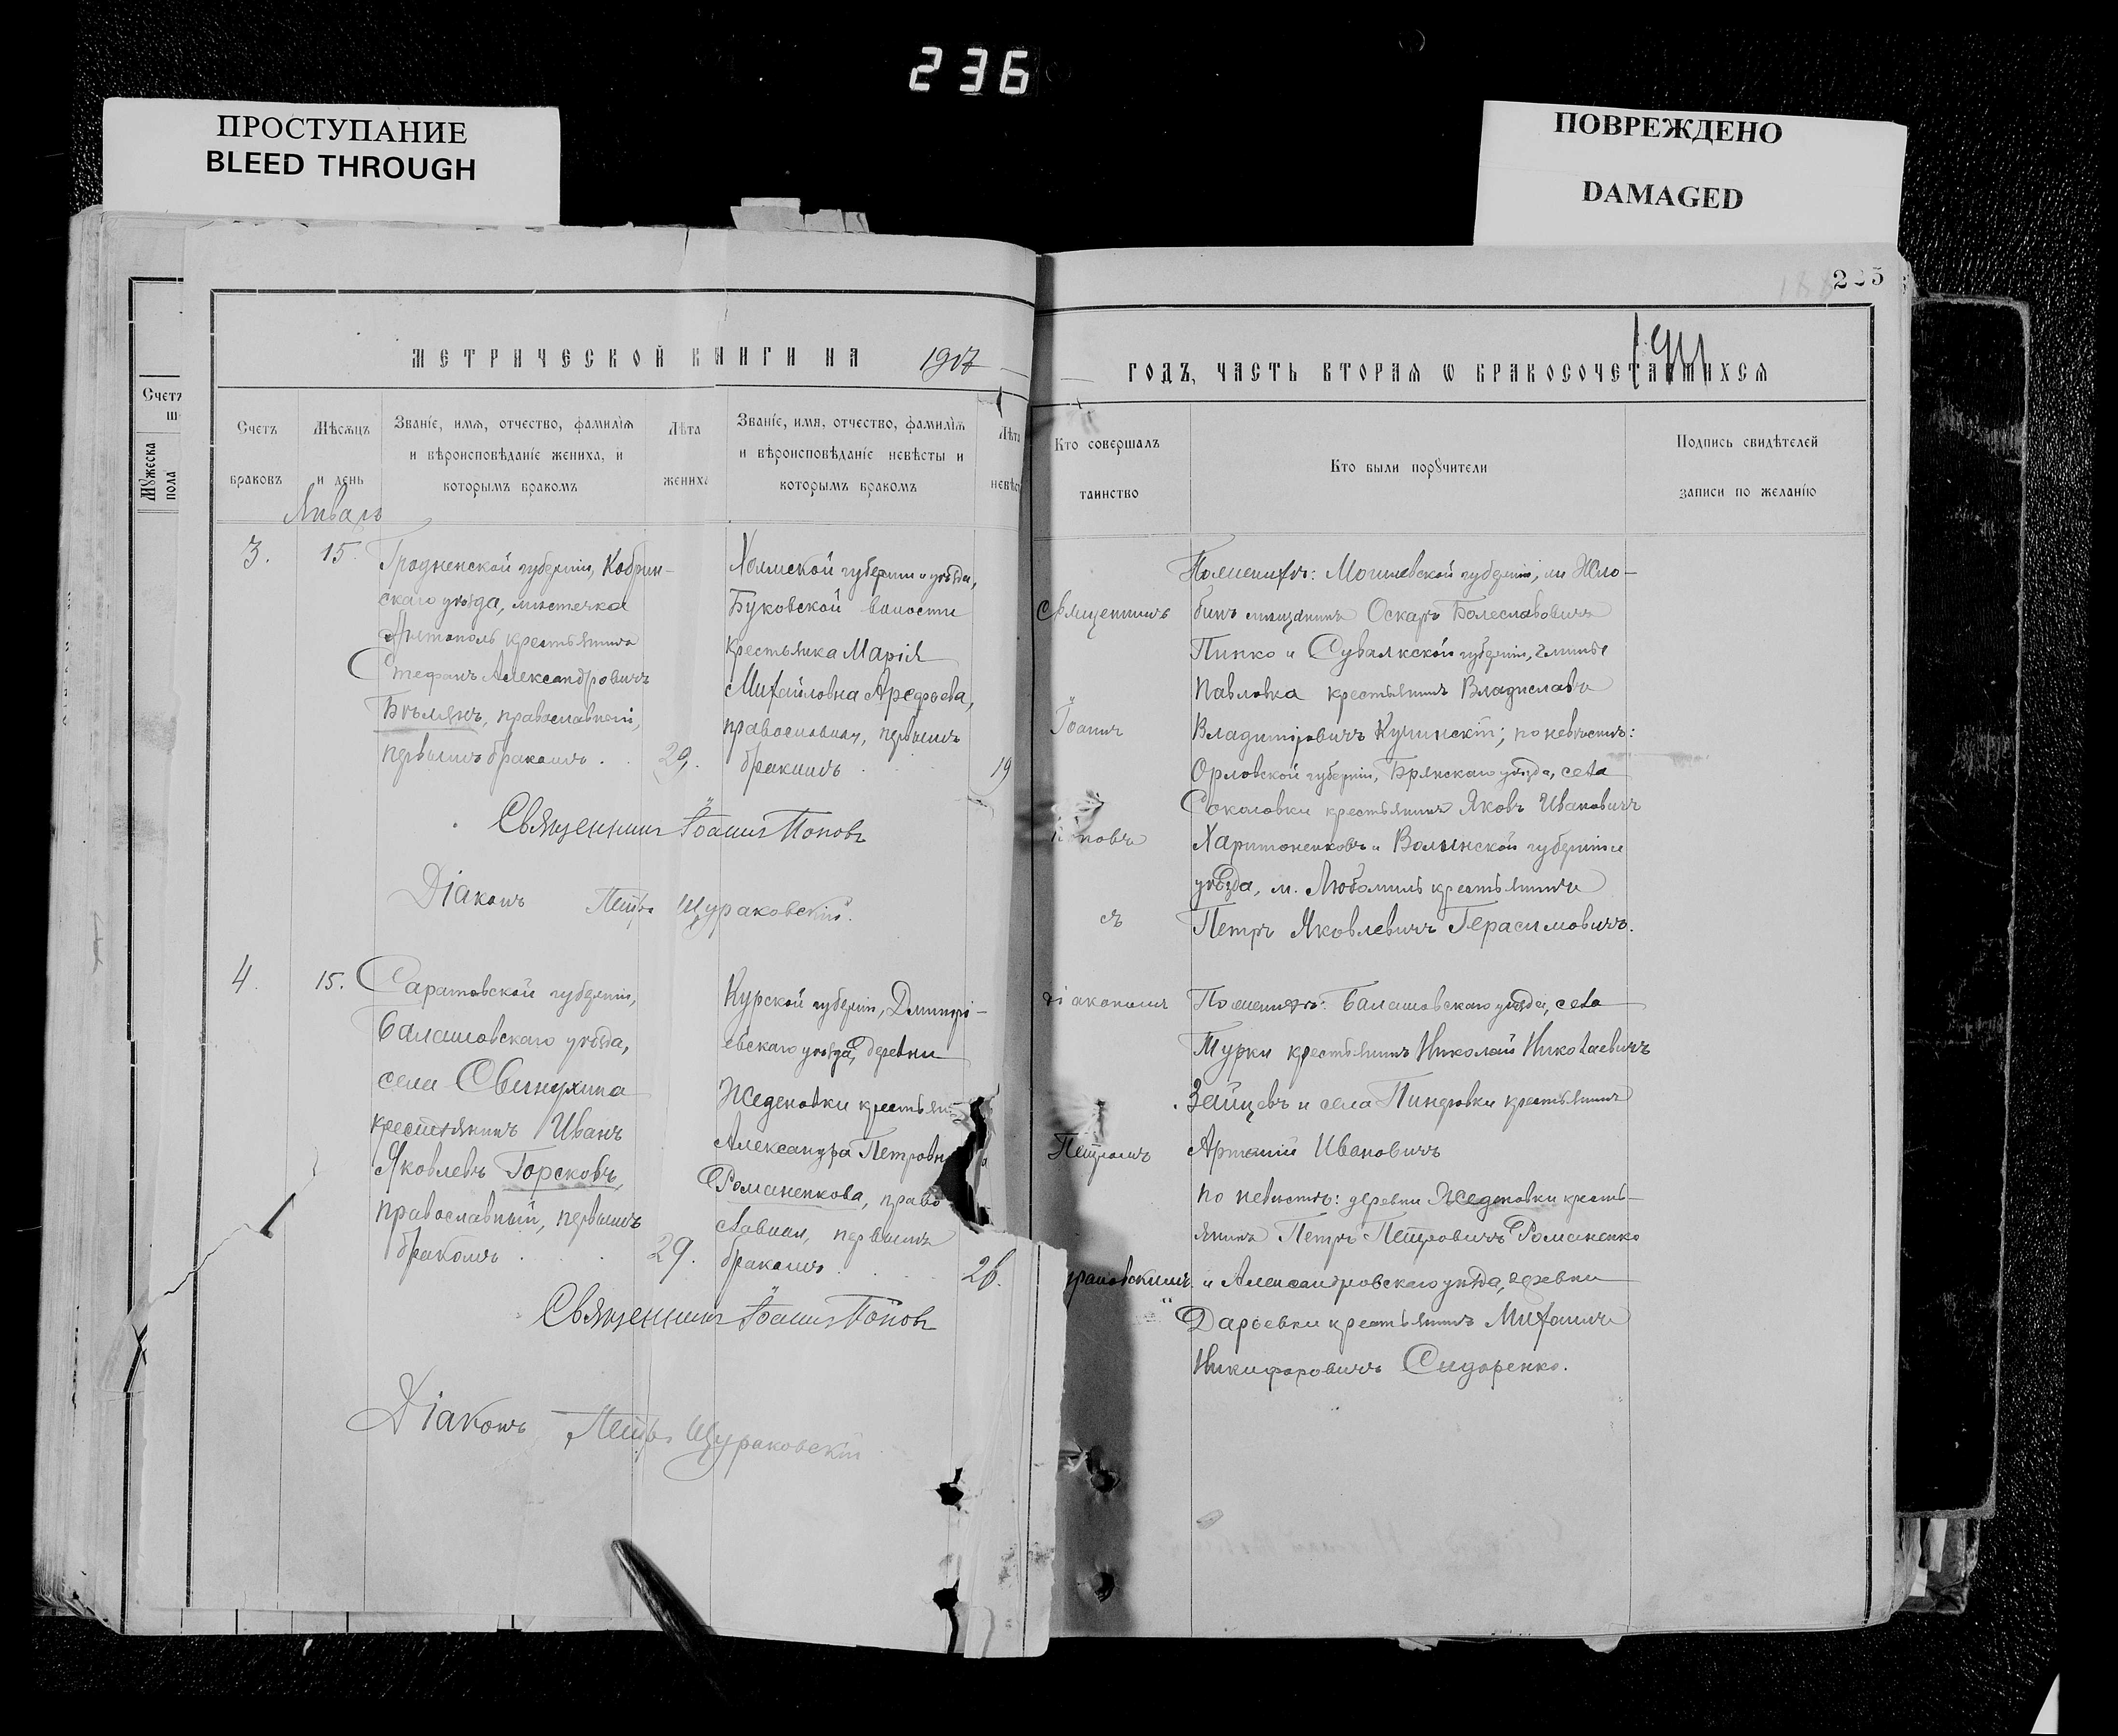 236
ПРОСТУПАНИЕ
BLEED THROUGH
ПОВРЕЖДЕНО
DAMAGED
225
МЕТРИЧЕСКОЙ КНИГИ НА 1917
Счетъ
браковъ
Мѣсяцъ
и день
Званіе, имя, отчество, фамилія
и вѣроисповѣданіе жениха, и
которымъ бракомъ
Лѣта
жениха
Званіе, имя, отчество, фамилія
и вѣроисповѣданіе невѣсты и
которымъ бракомъ
Лѣта
невѣс
Январь
3.
15.
Гродненской губерніи, Кобрин-
скаго уѣзда, мѣстечка
Антополь крестьянинъ
Стефанъ Александровичъ
Бѣлянъ, православный,
первымъ бракомъ.
29.
Холмской губерніи и уѣзда,
Буковской волости
крестьянка Марія
Михайловна Арефьева,
православная, первымъ
бракомъ
19
Священникъ Іоаннъ Поповъ
Діаконъ Петръ Щураковскій.
4.
15.
Саратовской губерніи,
Балашовскаго уѣзда,
села Свинухина
крестьянинъ Иванъ
Яковлевъ Горсковъ,
православный, первымъ
бракомъ
29.
Курской губерніи, Дмитрі-
евскаго уѣзда, деревни
Жеденовки крестьян
Александра Петровн
Романенкова, право
славная, первымъ
бракомъ
26.
Священникъ Іоаннъ Поповъ
Діаконъ Петръ Щураковскій
Счетъ
Мужеска
пола
ГОДЪ, ЧАСТЬ ВТОРАЯ Ѡ БРАКОСОЧЕТАВШИХСЯ
Кто совершалъ
таинство
Кто были поручители
Подпись свидѣтелей
записи по желанію
Священникъ
Іоаннъ
Поповъ
съ
діакономъ
Петромъ
ураковскимъ.
По женихѣ: Могилевской губерніи, м. Жло-
бинъ мѣщанинъ Оскаръ Болеславовичъ
Пинко и Сувалкской губерніи, гмины
Павловка крестьянинъ Владиславъ
Владиміровичъ Кучинскій; по невѣстѣ:
Орловской губерніи, Брянскаго уѣзда, села
Соколовки крестьянинъ Яковъ Ивановичъ
Харитоненковъ и Волынской губерніи и
уѣзда, м. Любомль крестьянинъ
Петръ Яковлевичъ Герасимовичъ.
По женихѣ: Балашовскаго уѣзда, села
Турки крестьянинъ Николай Николаевичъ
Зайцевъ и села Пинеровки крестьянинъ
Ивановичъ
по невѣстѣ: деревни Жеденовки кресть-
янинъ Петръ Петровичъ Романенко
и Александровскаго уѣзда, деревни
Дарьевки крестьянинъ Михаилъ
Никифоровичъ Сидоренко.